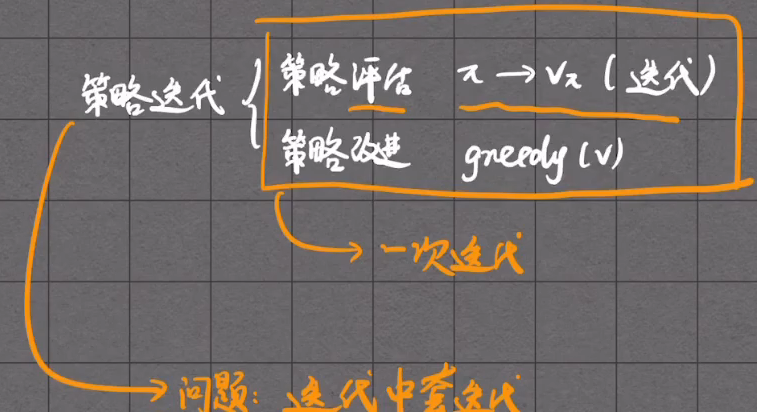 策略迭代
策略评估 π → vπ (迭代)
策略改进 greedy (v)
→ 一次迭代
→ 问题: 迭代中套迭代